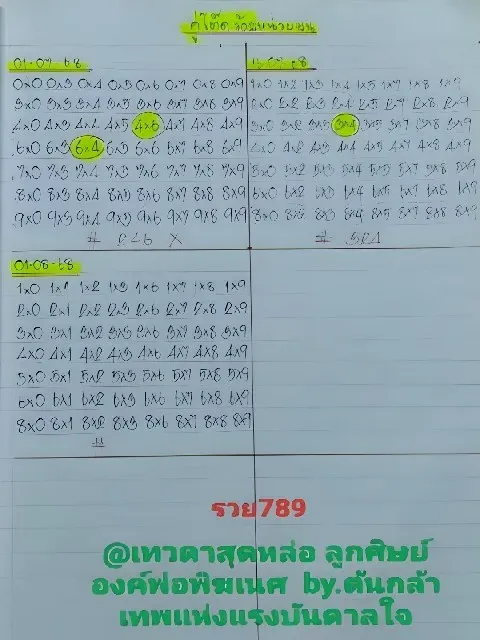 01-07-68
0x0 0x3 0x4 0x5 0x6 0x7 0x8 0x9
3x0 3x3 3x4 3x5 3x6 3x7 3x8 3x9
4x0 4x3 4x4 4x5 4x6 4x7 4x8 4x9
6x0 6x3 6x4 6x5 6x6 6x7 6x8 6x9
7x0 7x3 7x4 7x5 7x6 7x7 7x8 7x9
8x0 8x3 8x4 8x5 8x6 8x7 8x8 8x9
9x0 9x3 9x4 9x5 9x6 9x7 9x8 9x9
# 246 X
1x0 1x2 1x3 1x4 1x5 1x7 1x8 1x9
2x0 2x2 2x3 2x4 2x5 2x7 2x8 2x9
3x0 3x2 3x3 3x4 3x5 3x7 3x8 3x9
4x0 4x2 4x3 4x4 4x5 4x7 4x8 4x9
5x0 5x2 5x3 5x4 5x5 5x7 5x8 5x9
6x0 6x2 6x3 6x4 6x5 6x7 6x8 6x9
8x0 8x2 8x3 8x4 8x5 8x7 8x8 8x9
# 324
01-08-68
1x0 1x1 1x2 1x3 1x6 1x7 1x8 1x9
2x0 2x1 2x2 2x3 2x6 2x7 2x8 2x9
3x0 3x1 3x2 3x3 3x6 3x7 3x8 3x9
4x0 4x1 4x2 4x3 4x6 4x7 4x8 4x9
5x0 5x1 5x2 5x3 5x6 5x7 5x8 5x9
6x0 6x1 6x2 6x3 6x6 6x7 6x8 6x9
8x0 8x1 8x2 8x3 8x6 8x7 8x8 8x9
#
รวย789
@เทวดาสุดหล่อ ลูกศิษย์
องค์พ่อพิฆเนศ by.ต้นกล้า
เทพแห่งแรงบันดาลใจ